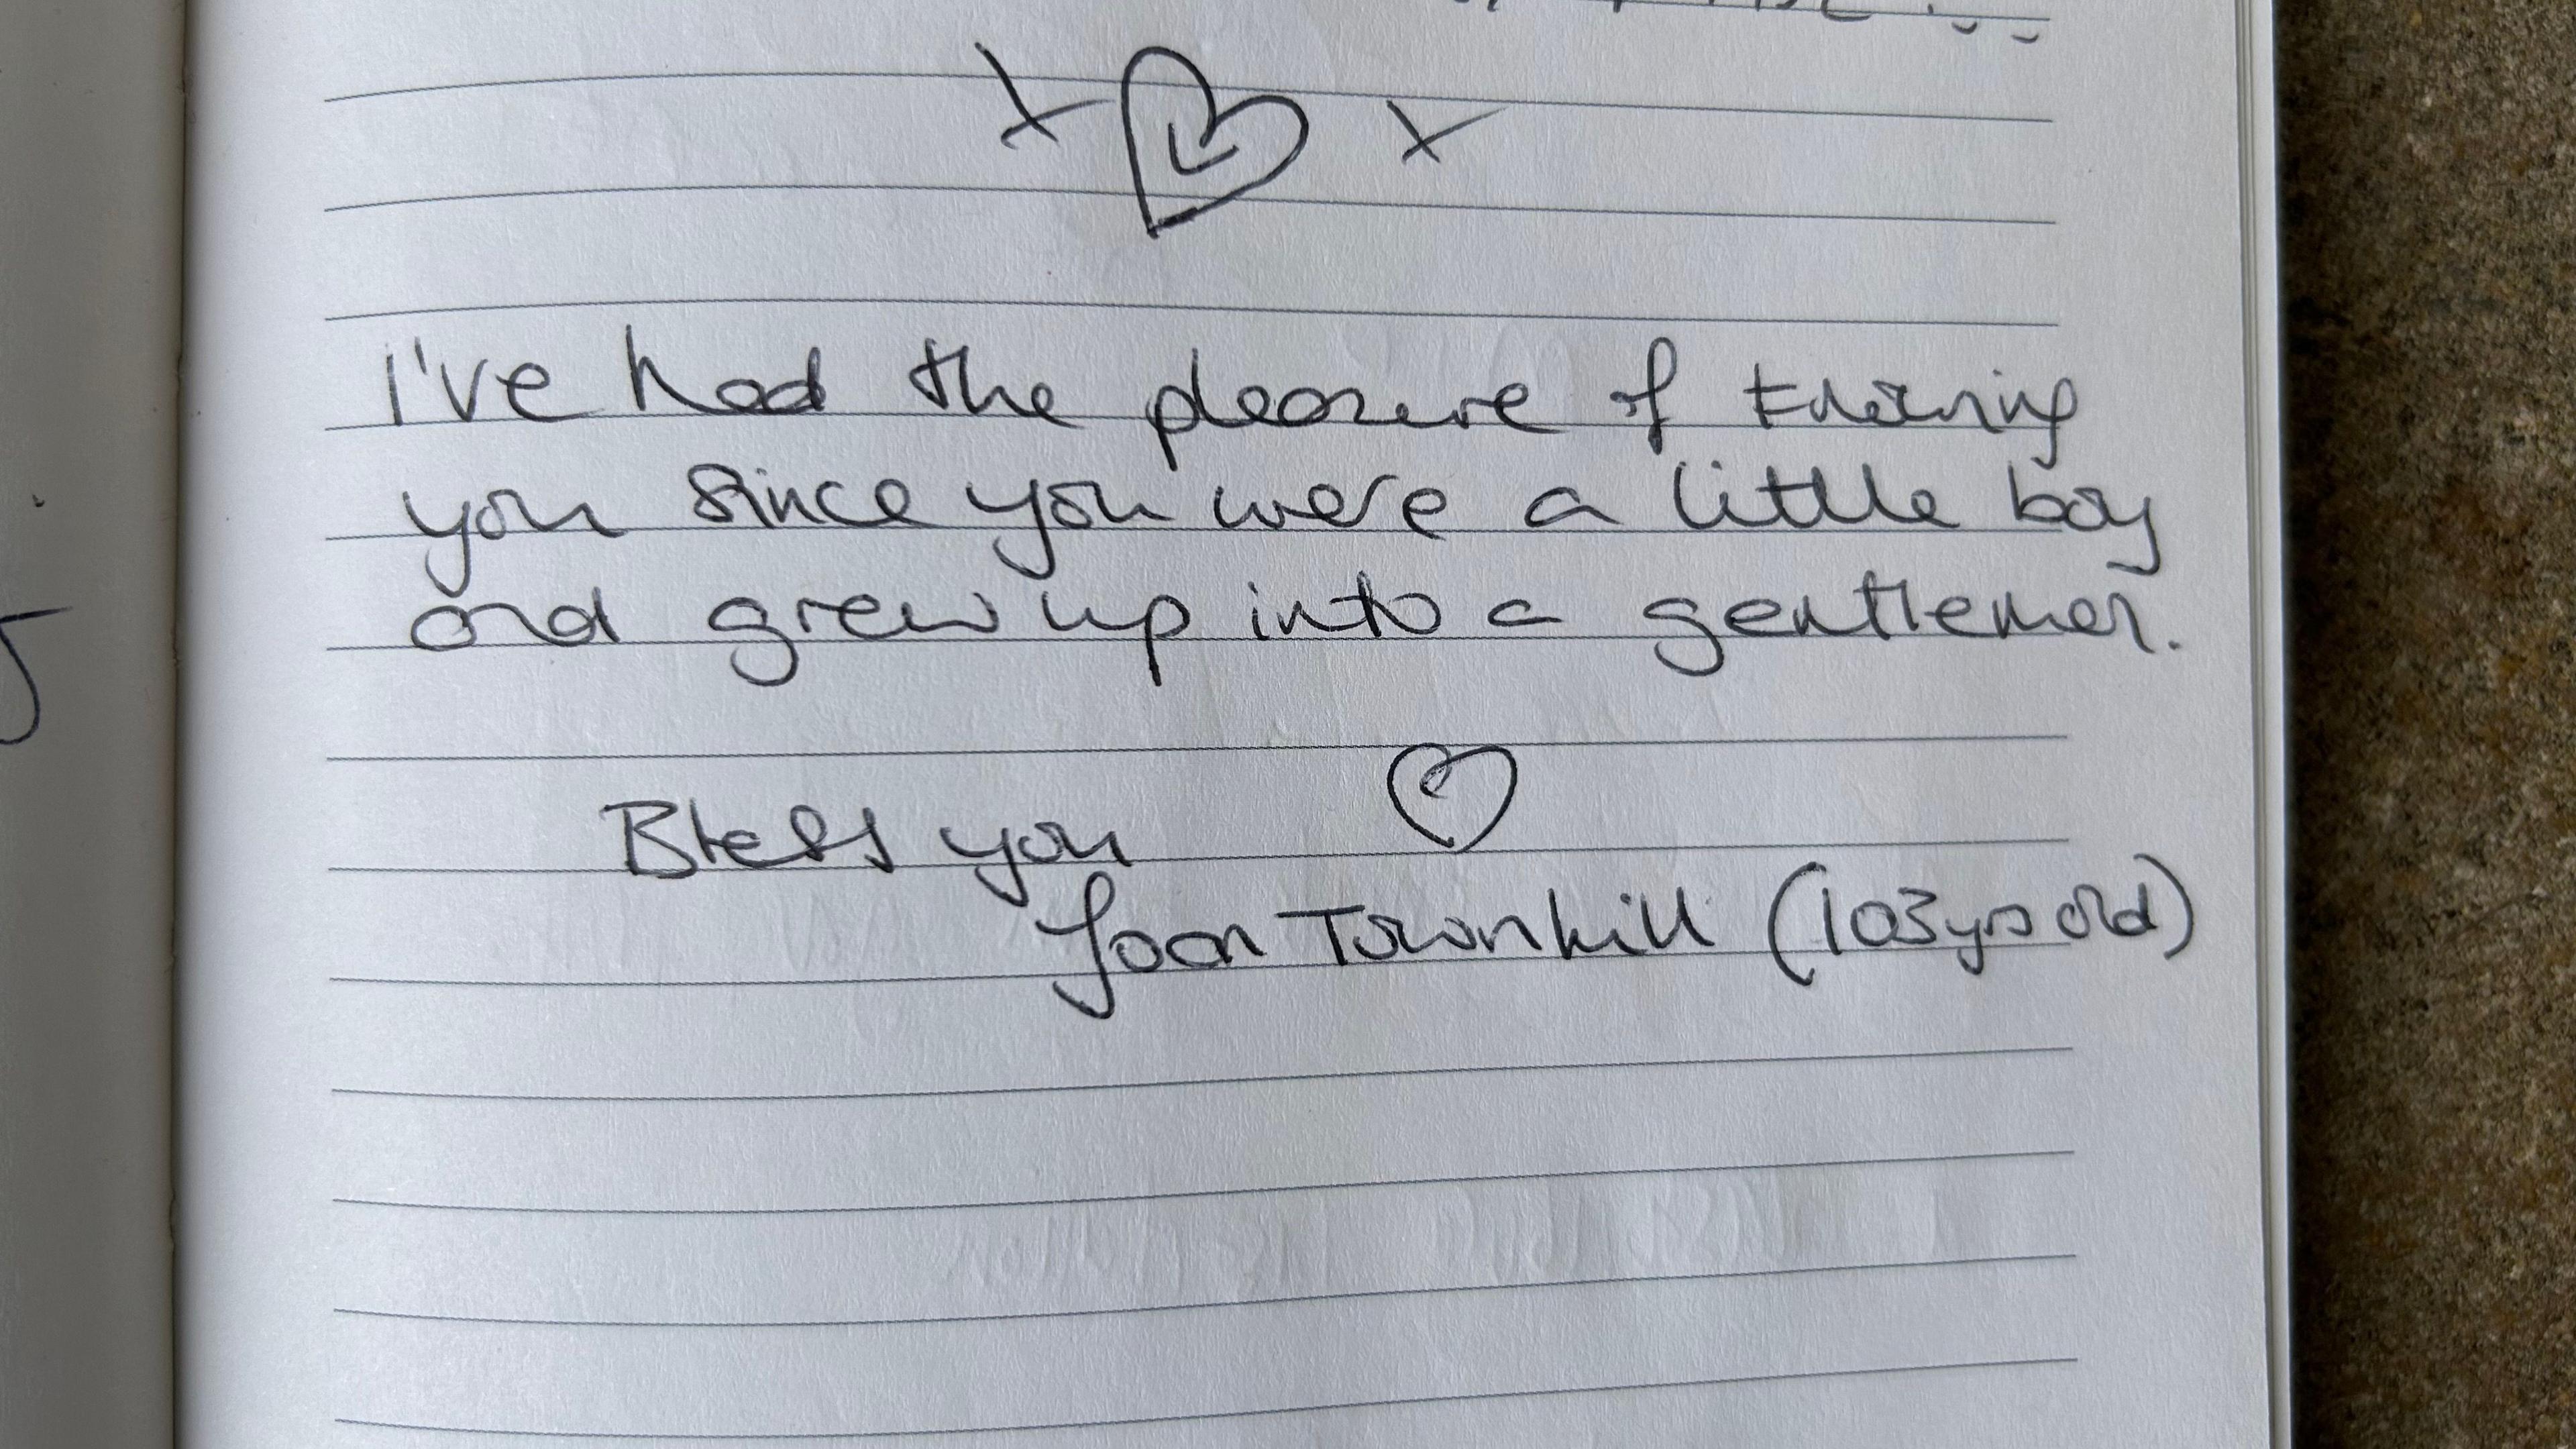 x x
I've had the pleasure of knowing
you since you were a little boy
and grew up into a gentleman.
Bless you
Joan Townhill (103yrs old)